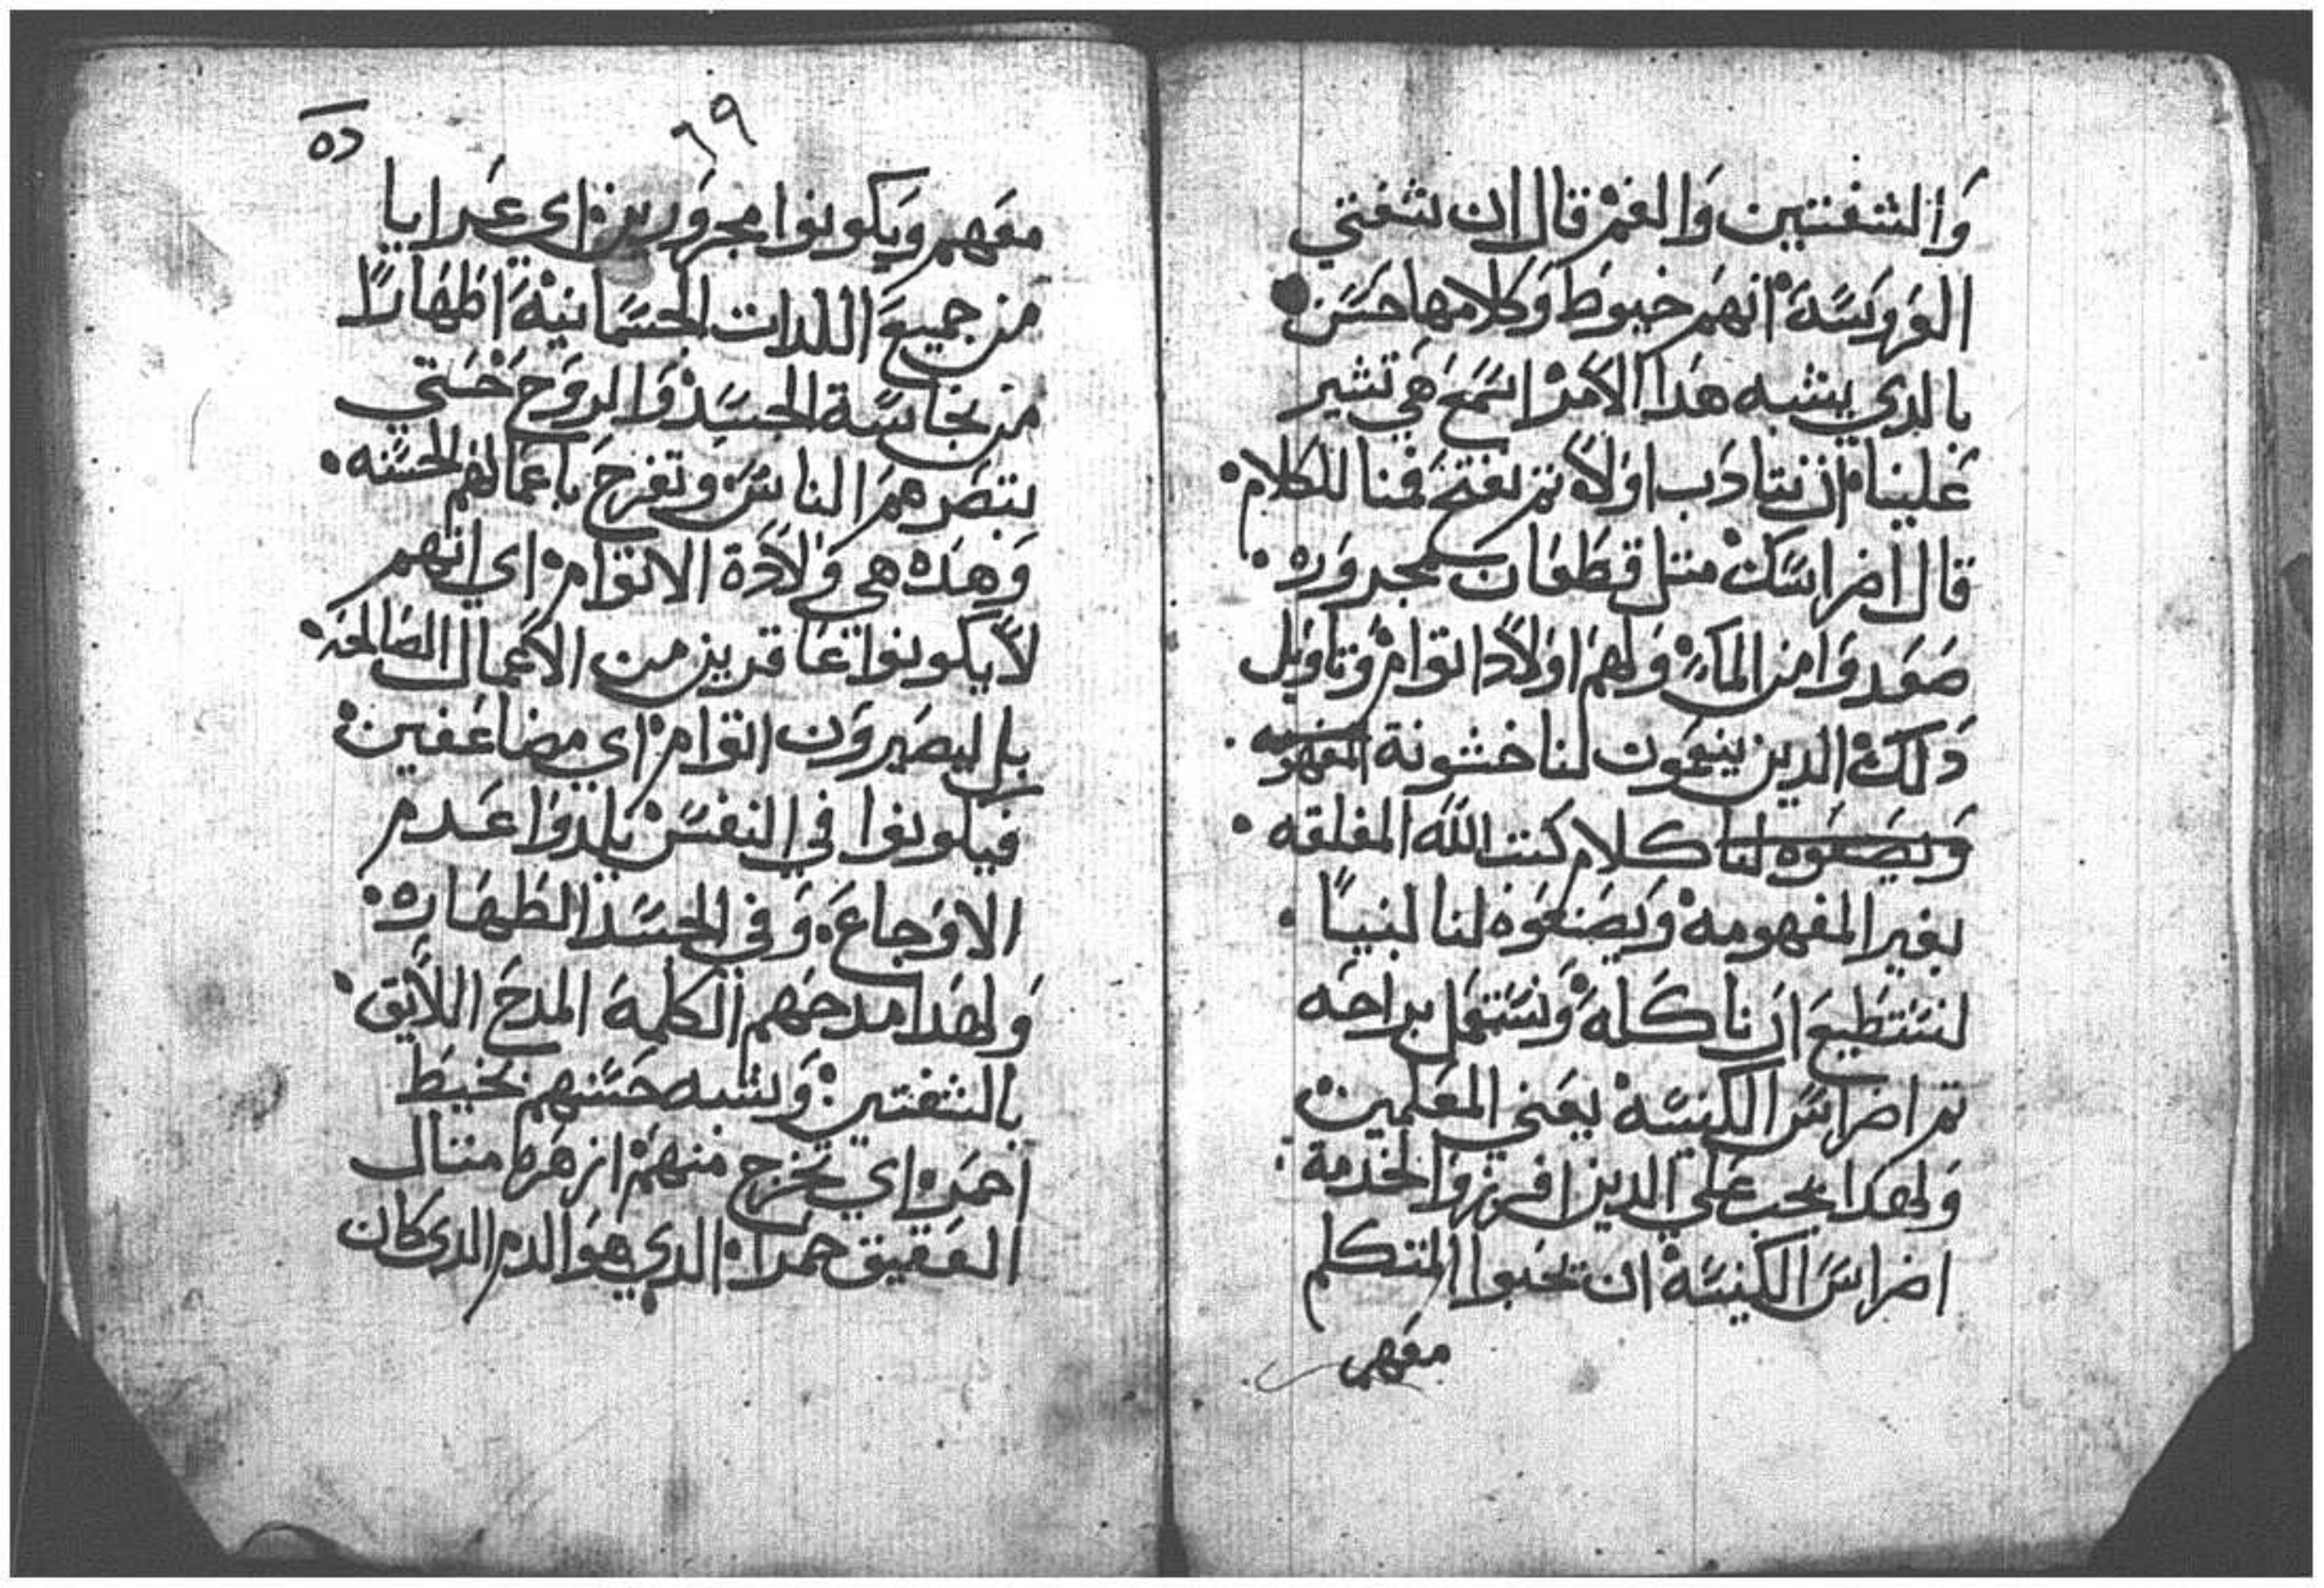 وَالشفتين وَالفمْ قال ان شفتي
العَروَسَة انهمَ خيوطَ وَكلامها حسَن
بالدي يشبه هَدا الاَمرْ اسَمعَ هَي تشير
عَلينا ان نتادَب اوَلاً تم نفتحَ فمنا للكلام.
قال اضراسَكْ متل قطعَان مجرورَه.
صَعَدوَا من الماَءِ وَلهمَ اوَلاَد اتوام وَتاويل
دَلكْ الدين ينعموَن لنا خشونة المفهومه.
وَيصَنعوَه لنا كلام كتب اللَه المغلقه.
بغير المفهومه وَيصَنعوَه لنا لنيياً.
لنسَتطيعَ ان ناكَله وَنسَتعمل براحَه
تم اضراسَ الكنيسَة يعَني المعَلمين
وَلهدا يجب عَلي الدين افرزوَا لخدمة:
اضراسَ الكنيسَة ان تحبوا المتكلم
معَهم
٦٩
معَهم وَيكونوا مجروَرين اي عَرايا
من جميعَ اللدات الجسَمانية اطَهاراً
من نجاسَة الجسَد وَالروَح حَتي
ينتصَرهمَ الناسَ وتفرحَ باعَمالهم الحسَنه.
وَهدَه هي وَلادَة الاتوام اي انهم
لاَ يكونوا عَاقرين من الاعَمال الصَالحَه.
بل ليصَيروَن اتوام اي مضاعَفين
فيكونوا في النفسَ يلدوَا عَدم
الاوَجاعَ. وَفي الجسَد الطَهَاره.
وَلهدا مدحَهم الكلمة المدحَ اللاَيق.
بالشفتين. وَيشبه حسَنهم بخيطَ
احمَر اي تخرج منهمَ ازهَر متال
العَقيق حمرا. الدي هوَ الدم الدي كان